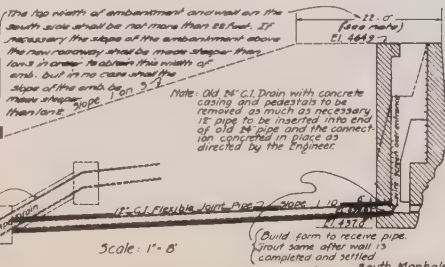 The top width of embankment and wall on the
south side shall be not more than 22 feet. If
necessary the slope of the embankment above
the new roadway shall be made steeper than
1 on 3 in order to obtain this width of
emb. but in no case shall the
slope of the emb. be
made steeper
than 1 on 2
Slope 1 on 3
22'-0"
(see note)
El. 464.9
Note: Old 24" C.I. Drain with concrete
casing and pedestals to be
removed as much as necessary
12" pipe to be inserted into end
of old 24" pipe and the connect-
ion concreted in place as
directed by the Engineer.
over entrance
Drain
12" C.I. Flexible Joint Pipe Slope 1:10
El. 437.0
Scale: 1" = 8'
Build form to receive pipe.
Grout same after wall is
completed and settled
South Manhole